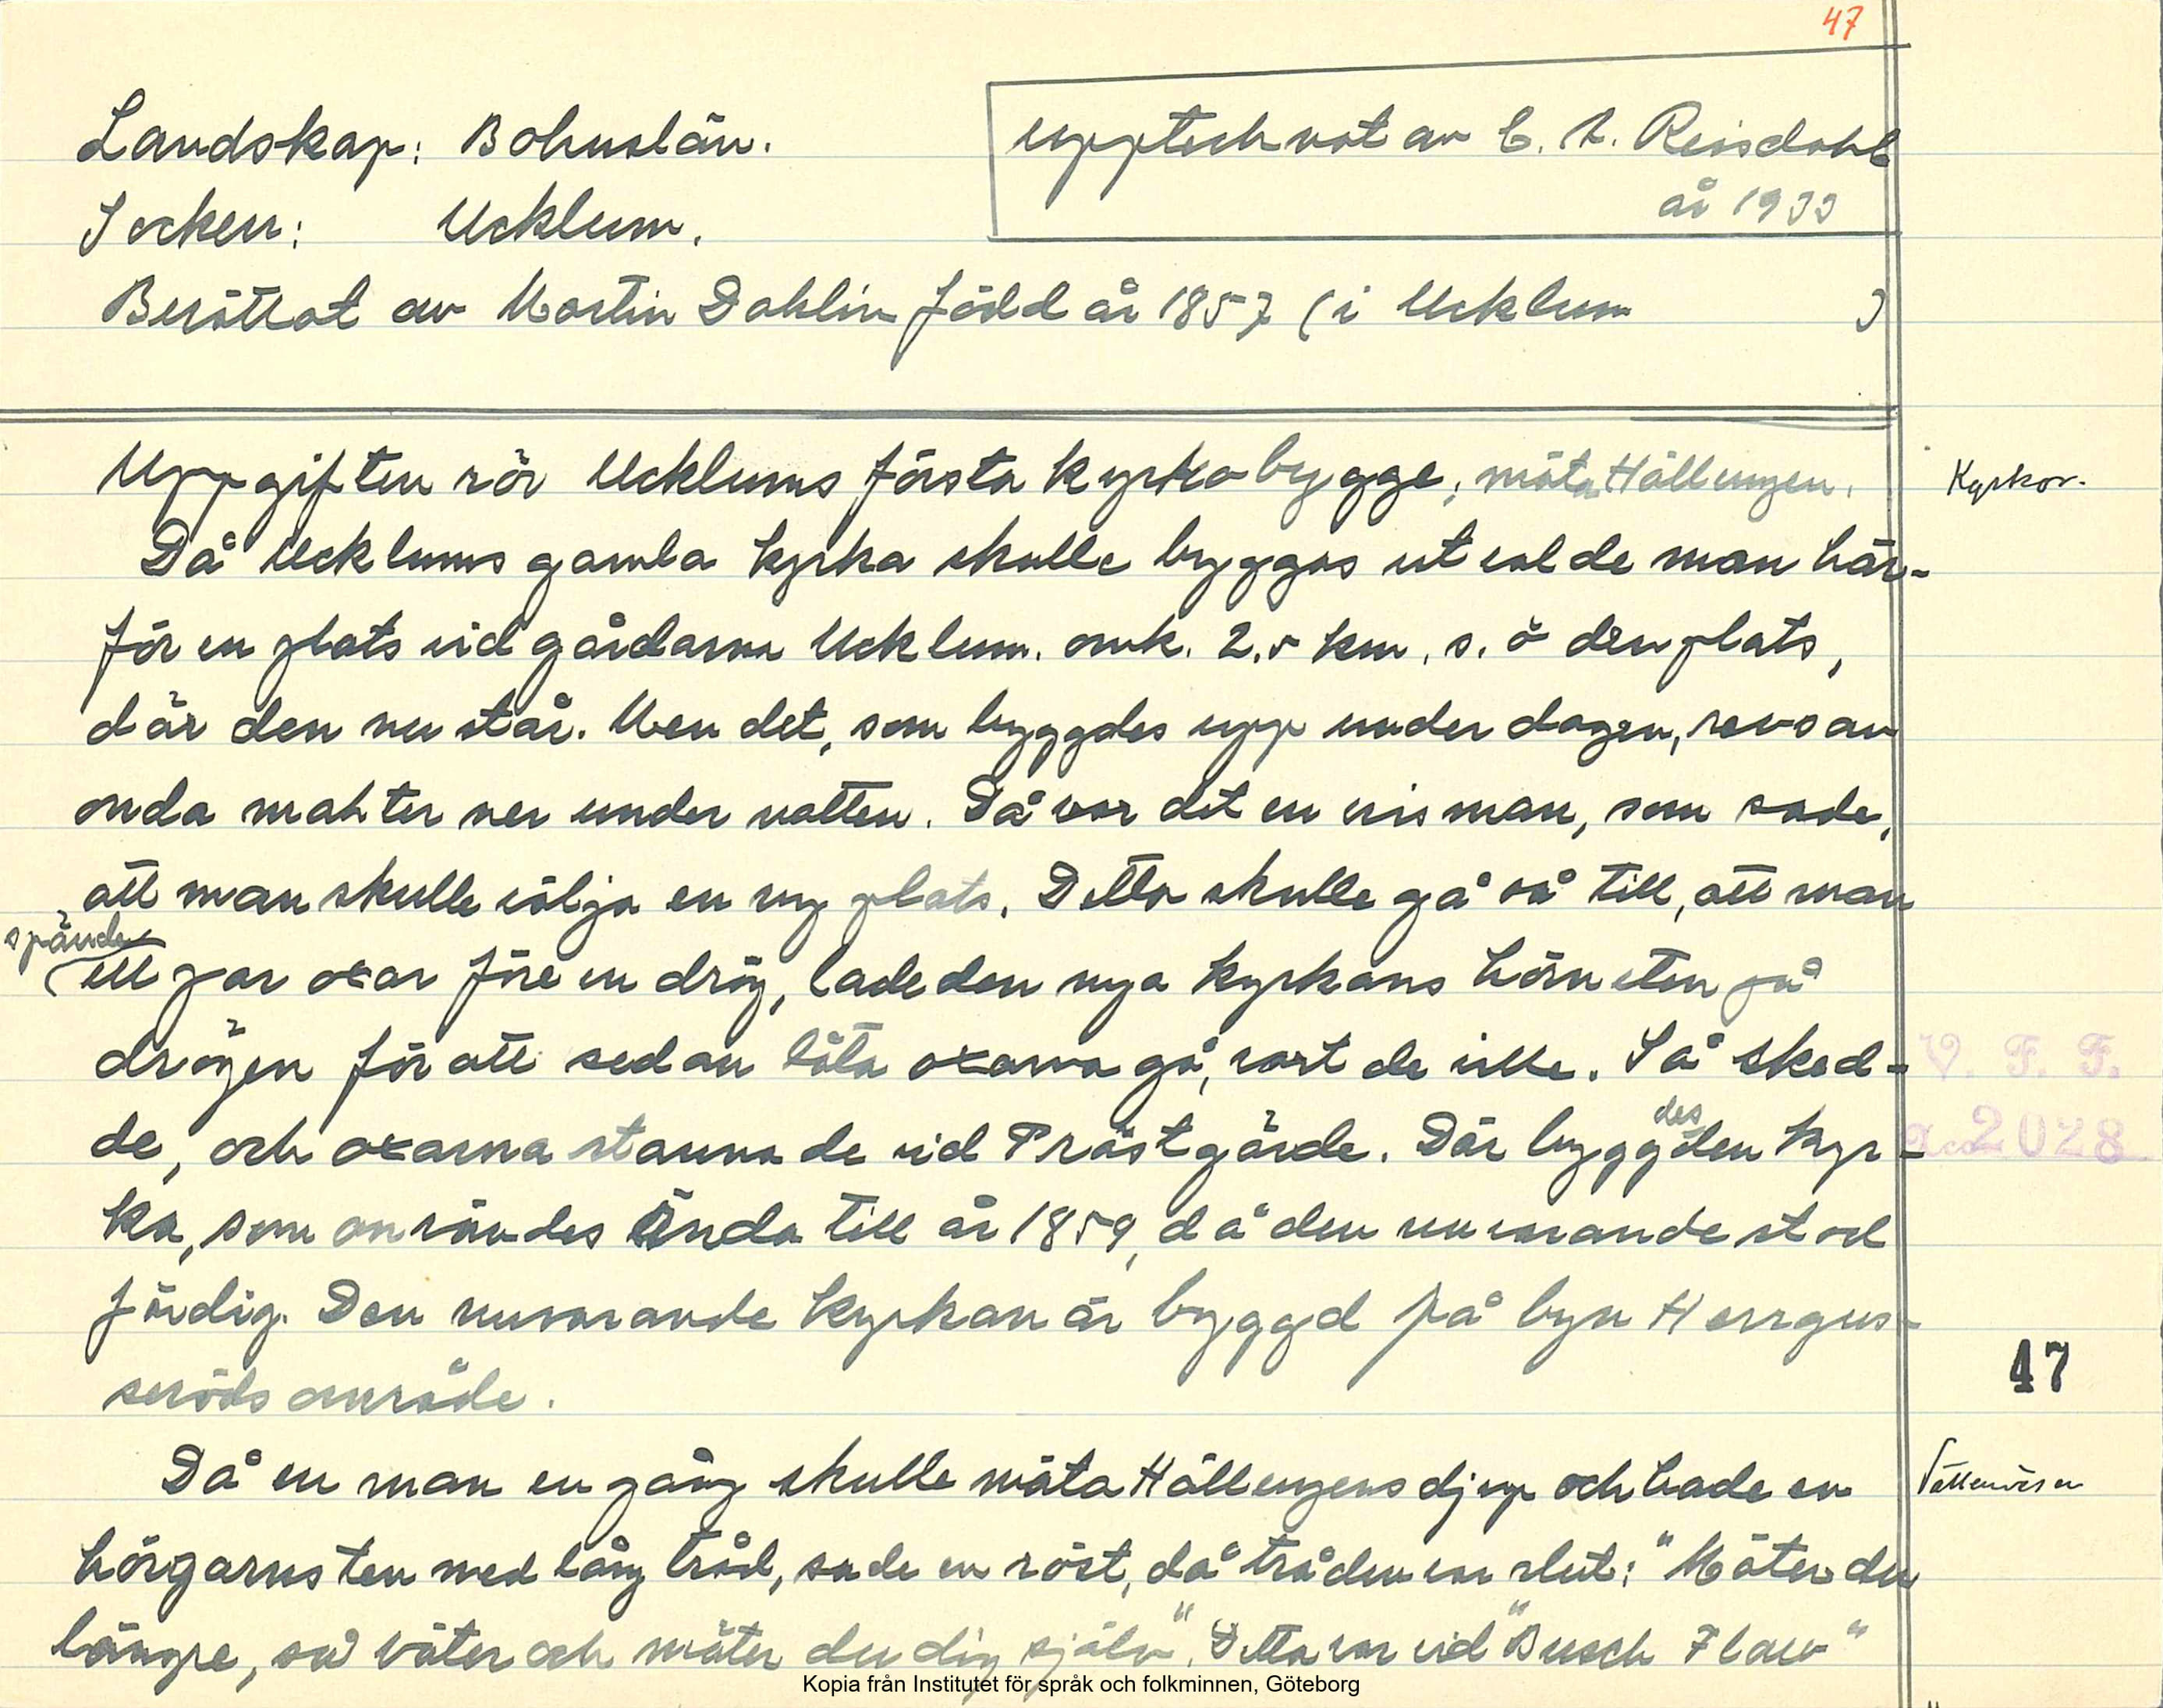 47
Landskap: Bohuslän.
upptecknat av C. A. Reisdahl
år 1933
Socken: Ucklum.
Berättat av Martin Dahlin född år 1857 (i Ucklum )
Uppgiften rör Ucklums första kyrkobygge, mäta Hällungen.
Kyrkor.
Då Ucklums gamla kyrka skulle byggas utvalde man här-
för en plats vid gårdarna Ucklum. omk. 2.5 km. s. ö den plats,
där den nu står. Men det, som byggdes upp under dagen, revs av
onda makter ner under natten. Då var det en vis man, som sade,
att man skulle välja en ny plats. Detta skulle gå så till, att man
spände
ett par oxar före en drög, lade den nya kyrkans hörnsten på
drögen för att sedan låta oxarna gå, vart de ville. Så sked-
V. F. F.
de, och oxarna stannade vid Prästgärde. Där byggdes den kyr-
2028
ka, som användes ända till år 1859, då den nuvarande stod
färdig. Den nuvarande kyrkan är byggd på byn Herrgus-
47
seröds område.
Då en man en gång skulle mäta Hällungens djup och hade en
Vättenväsen
hörgarnsten med lång tråd, sade en röst, då tråden var slut: "Mäter du
längre, så väter och mäter du dig själv". Detta var vid "Busch Flaw"
Kopia från Institutet för språk och folkminnen, Göteborg